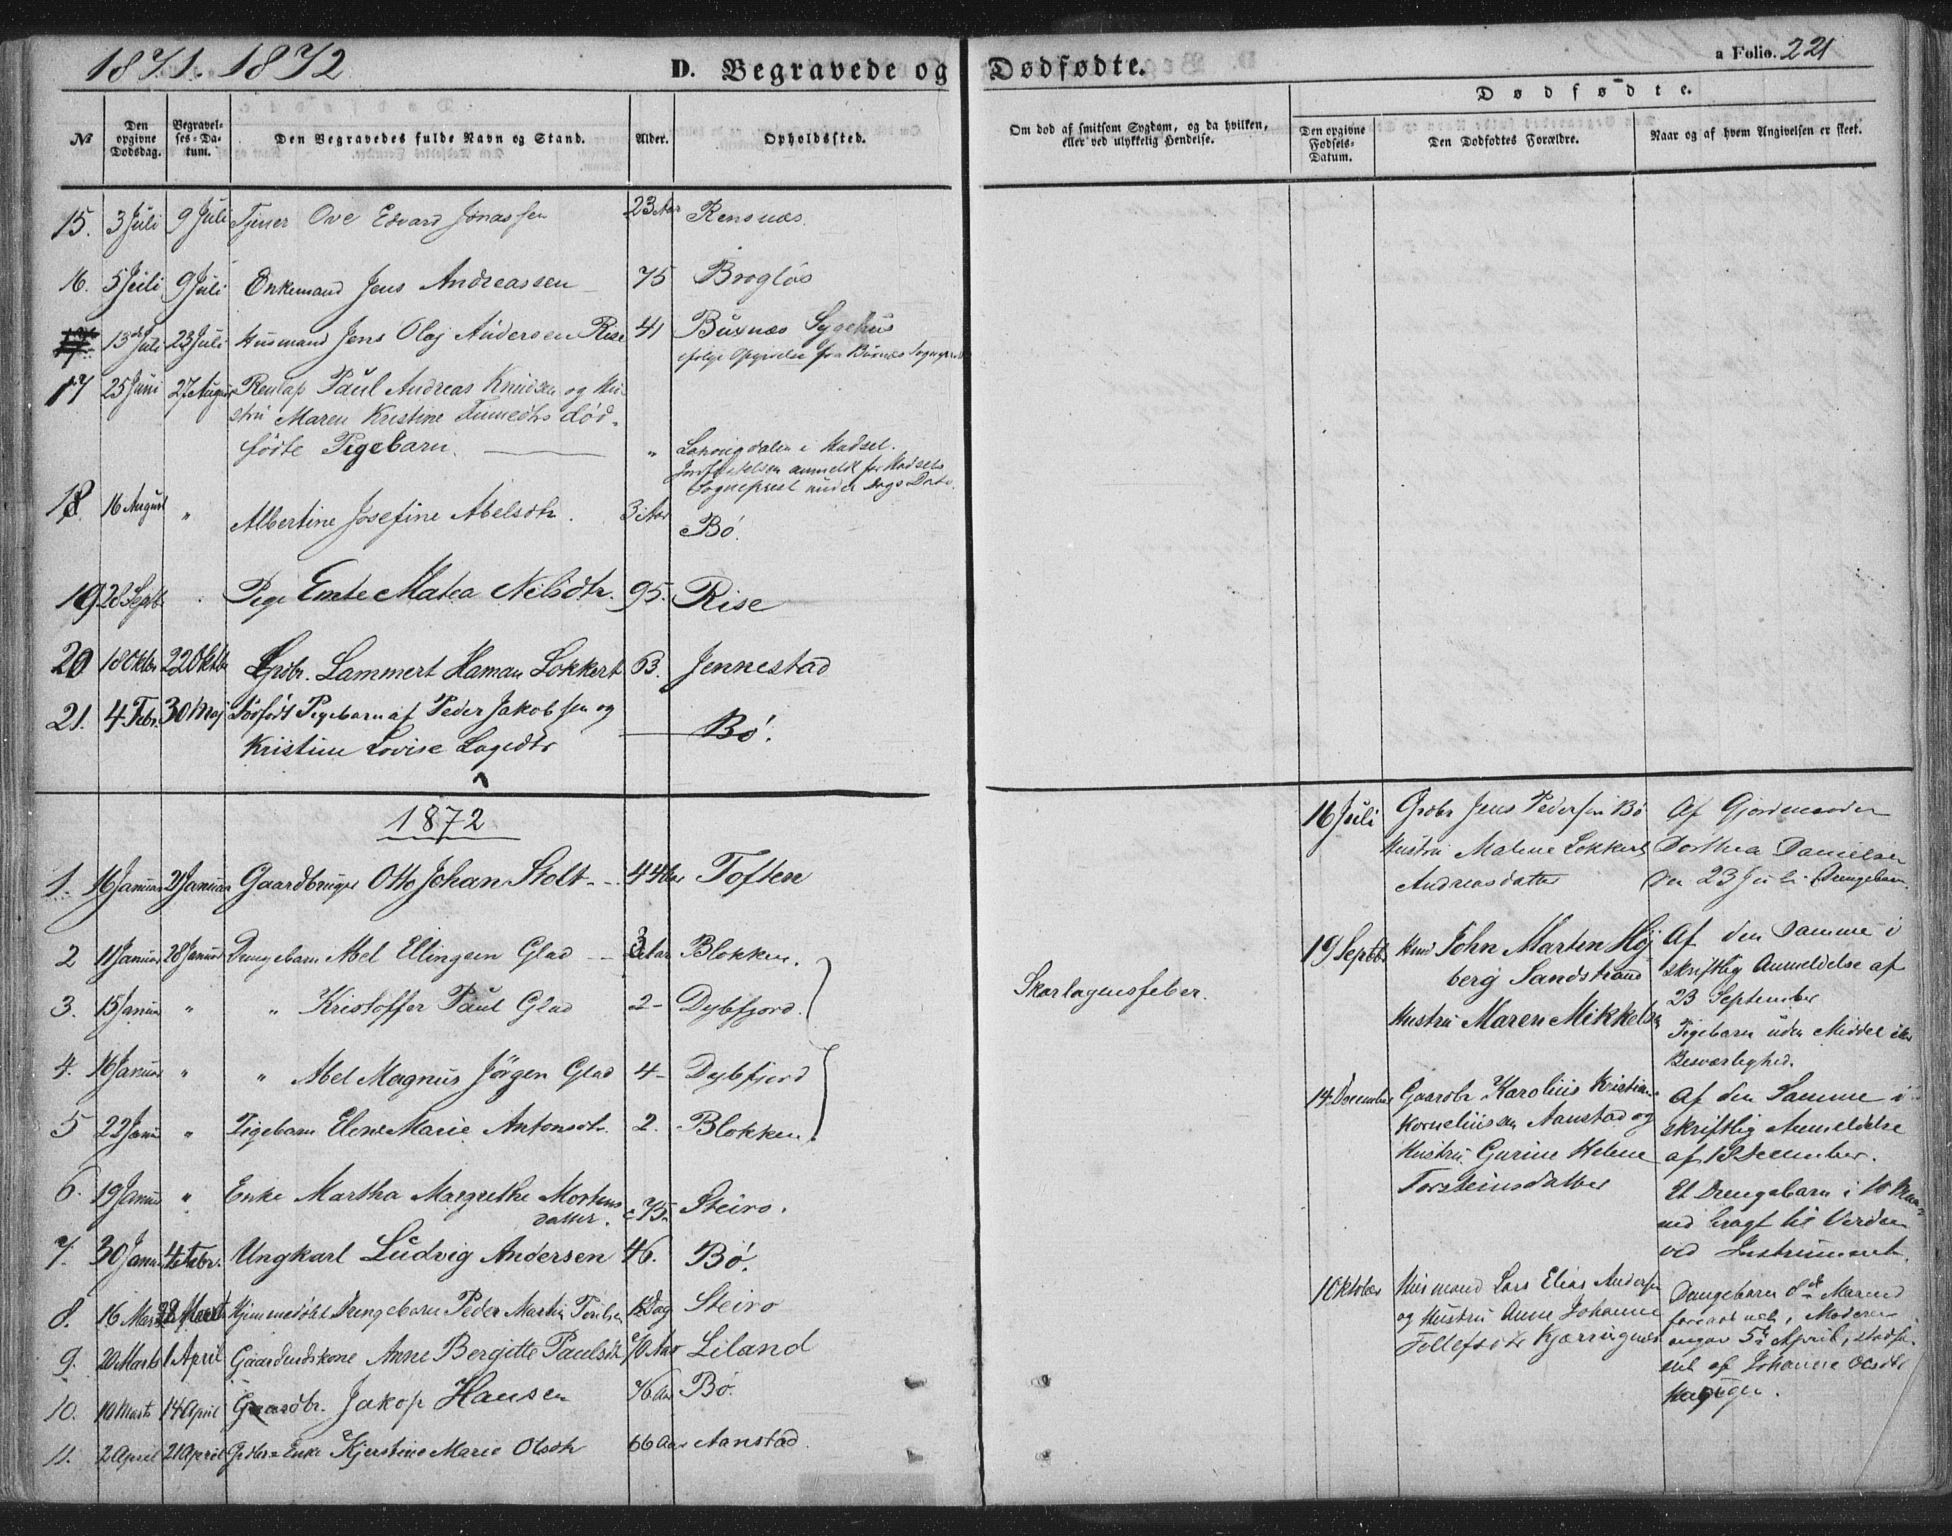 1871. 1872
D. Begravede og Dødfødte.
a Folio. 221
№
Den opgivne Dødsdag.
Begravelses-Datum.
Den Begravedes fulde Navn og Stand.
Alder.
Opholdssted.
Om død af smitsom Sygdom, og da hvilken,
eller ved ulykkelig Hendelse.
Dødfødte.
Den opgivne Fødsels-Datum.
Den Dødfødtes Forældre.
Naar og af hvem Angivelsen er skeet.
15. 3 Juli 9 Juli Tjener Ove Edvard Jonassen 23 Aar Rensnæs.
16. 5 Juli 9 Juli Enkemand Jens Andreassen 75 Brogløs
17 13de Juli 23 Juli Husmand Jens Olaj Andersen Rise 41 Buxnæs Sygehus
ifølge Opgivelse fra Buxnæs Sogneprest
17 25 Juni 27 August Paul Andreas Knudsen og Hu-
stru Maren Kristine død-
fødte Pigebarn. " i Hadsel.
anmeldt for Hadsels
Sogneprest under Dags Dato.
18. 16 August " Albertine Josefine Abelsdtr. 3 Aar Bø.
19 28 Septb. Pige Emte Matea Nilsdtr. 95. Rise
20 18 Oktbr 22 Oktbr Grdbr. Lammert Haman Lokkert 63. Jennestad
21. 4 Febr. 30 Maj Dødfødt Pigebarn af Peder Jakobsen og
Kristine Lovise Lagedtr Bø.
1872
1. 16 Januar 21 Januar Gaardbruger Otto Johan Stolt 44 Aar Toften
2 11 Januar 28 Januar Drengebarn Abel Ellingsen Glad 3 Aar Blokken.
3. 15 Januar " " Kristoffer Paul Glad 2 Dybfjord.
4. 16 Januar " " Abel Magnus Jørgen Glad 4 Dybfjord
5 22 Janu " Pigebarn Eline Marie Antonsdtr. 2. Blokken.
6. 19 Januar " Enke Martha Margrethe Mortens
datter. 75 Steiro.
7. 30 Janu 4 Febr. Ungkarl Ludvig Andersen 46. Bø.
8. 16 Mars Marts Hjemmedøbt Drengebarn Peder Martin Dag Steiro
9. 20 Marts 1 April Gaardmandskone Anne Bergitte Paulsdtr 70 Aar Liland
10. 10 Marts 14 April Gaardbr. Jakop Hansen 76 Aar Bø.
11. 2 April 21 April Grdbr. Enke Kjerstine Marie Olsdtr 66 Aar Aanstad.
Skarlagensfeber.
16 Juli Grdbr Jens Pedersen Bø
Hustru Malene Lokkert
Andreasdatter
Af Gjordemoder
Dorthea Danielsen
den 23 Juli (Drengebarn.
19 Septbr John Martin Høj
berg Sandstrand
Hustru Maren Mikkels
Af den Samme i
skriftlig Anmeldelse af
23 September
Pigebarn uden Middel eller
Besværlighed.
14 December Gaardbr Karolius Kristian
Korneliussen Aanstad og
Hustru Gurine Helene
Torsteinsdatter
Af den Samme i
skriftlig Anmeldelse
af December.
Et Drengebarn i 10 Maa-
ned bragt til Verden
ved Instrument.
1 Oktober Husmand Lars Elias Andersen
og Hustru Anne Johanne
Tollefsdtr Kjerringnes
Drengebarn 8de Maaned
Moderen
angav 5te April,
af Johanne Olsdtr